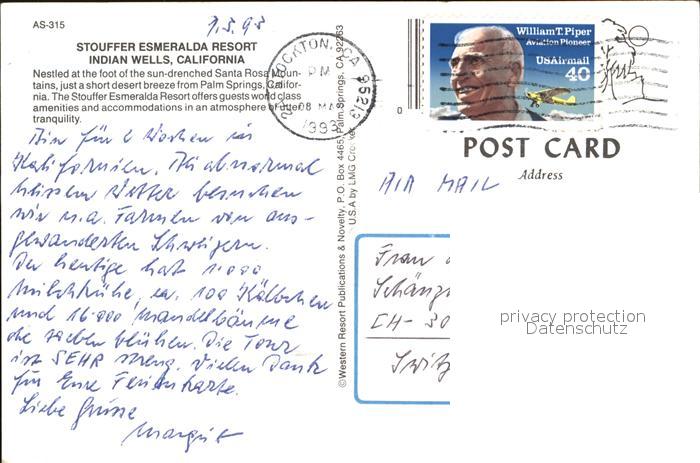 AS-315
7.3.93
STOUFFER ESMERALDA RESORT
INDIAN WELLS, CALIFORNIA
Nestled at the foot of the sun-drenched Santa Rosa Moun-
tains, just a short desert breeze from Palm Springs, Califor-
nia. The Stouffer Esmeralda Resort offers guests world class
amenities and accommodations in an atmosphere of
tranquility.
Bin für 2 Wochen in
Kalifornien. Bei abnormal
heissem Wetter besuchen
wir u.a. Farmen von aus-
gewanderten Schweizern.
Der heutige hat 1'000
Milchkühe, ca. 100 Kälbchen
und 16'000 Mandelbäume
die soeben blühen. Die Tour
ist SEHR streng. Vielen Dank
für Eure Ferienkarte.
Liebe Grüsse
Margrit
STOCKTON, CA 952
PM
08 MAR
1993
©Western Resort Publications & Novelty, P.O. Box 4465, Palm Springs, CA 92263
U.S.A by LMG
William T. Piper
Aviation Pioneer
USAirmail
40
0
POST CARD
Address
AIR MAIL
Frau
CH- 30
privacy protection
Datenschutz